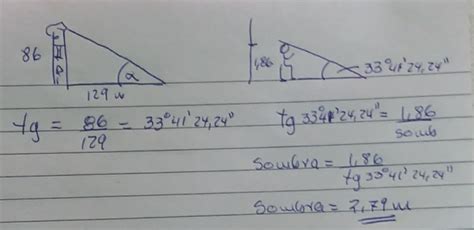 86
α
129 m
1,86
33°41'24,24"
tg = 86/129 = 33°41'24,24"
tg 33°41'24,24" = 1,86/somb
sombra = 1,86/tg 33°41'24,24"
sombra = 2,79 m